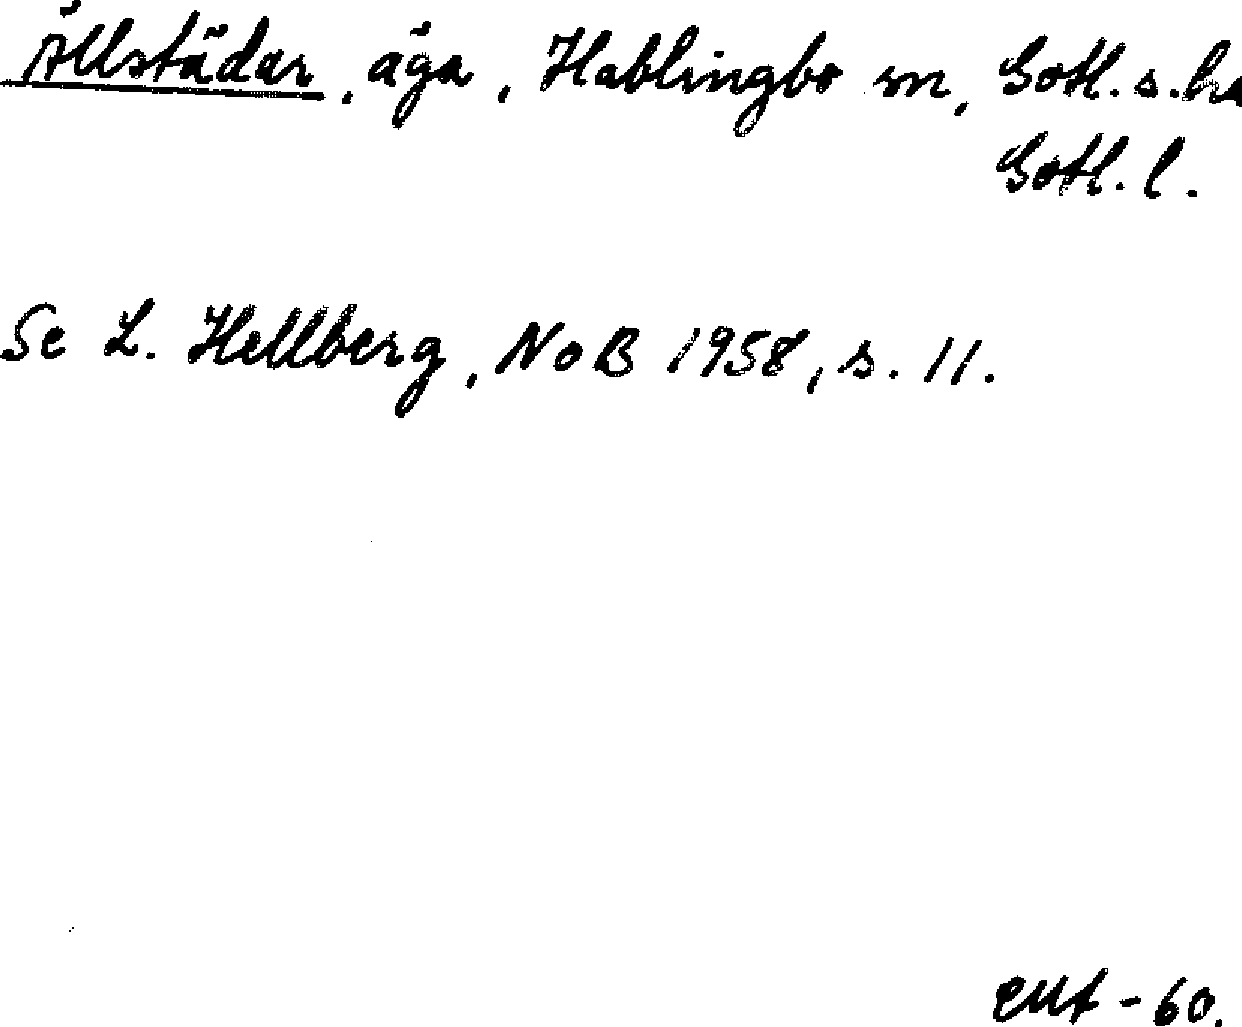 Ällstädar, äga, Hablingbo sn, Gotl. s. hd
Gotl. l.
Se L. Hellberg, NoB 1958, s. 11.
-60.